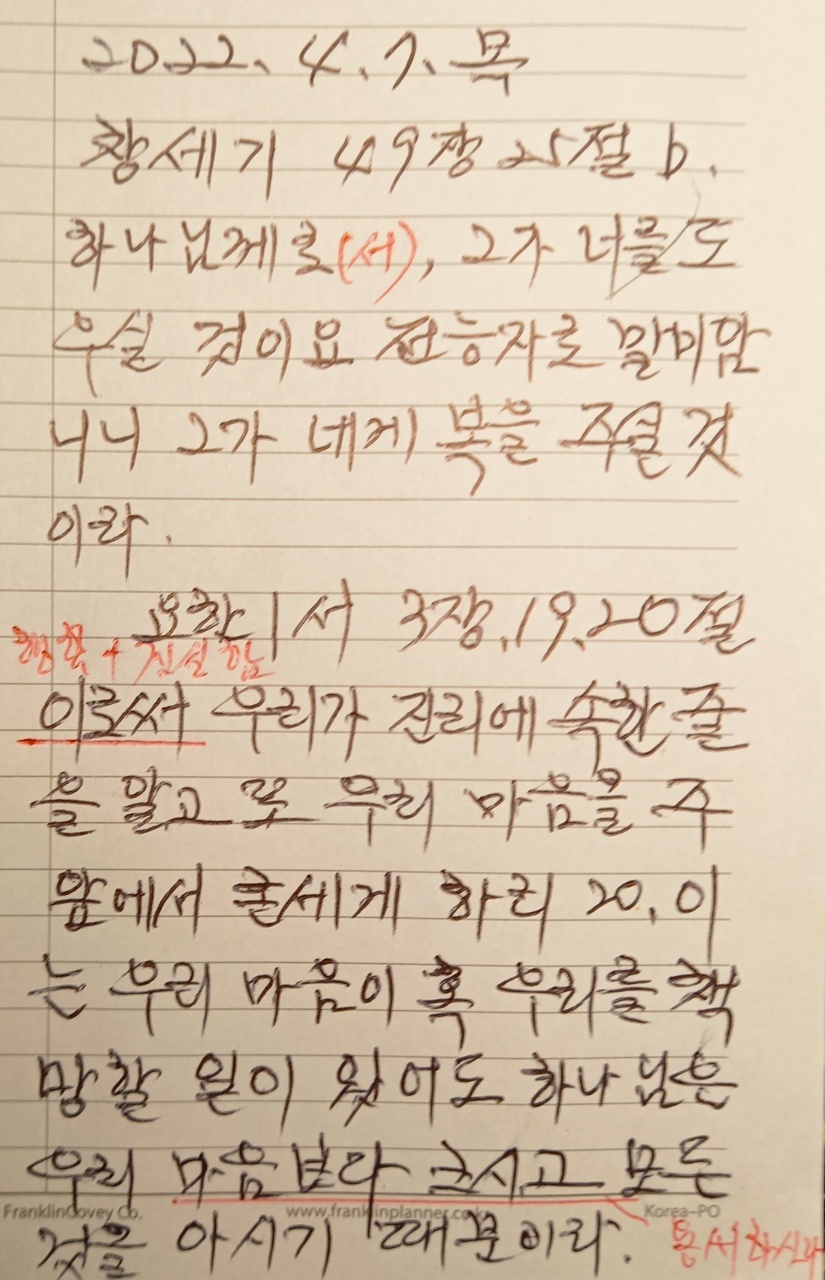 2022. 4. 7. 목
창세기 49장 25절 b.
하나님께로(서), 그가 너를 도
우실 것이요 전능자로 말미암
나니 그가 네게 복을 주실 것
이라.
요한 1서 3장. 19. 20절
행함 + 진실함
이로써 우리가 진리에 속한 줄
을 알고 또 우리 마음을 주
앞에서 굳세게 하리 20. 이
는 우리 마음이 혹 우리를 책
망할 일이 있어도 하나님은
우리 마음보다 크시고 모든
FranklinCovey Co. www.franklinplanner.co.kr Korea-PO
것을 아시기 때문이라.